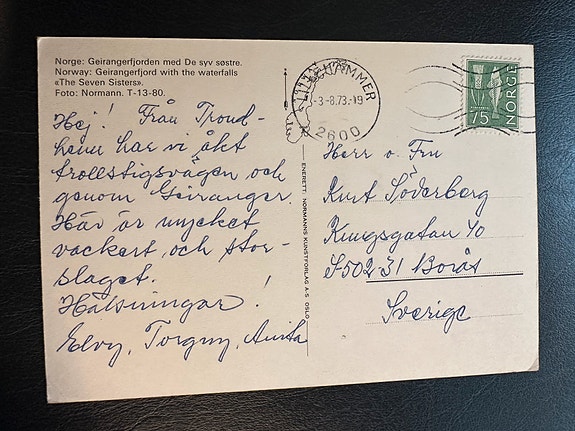 Norge: Geirangerfjorden med De syv søstre.
Norway: Geirangerfjord with the waterfalls
«The Seven Sisters».
Foto: Normann. T-13-80.
Hej! Från Trond-
heim har vi åkt
trollstigsvägen och
genom Geiranger.
Här är mycket
vackert och stor-
slaget.
Hälsningar!
Elvy, Torgny, Anita
ENERETT: NORMANNS KUNSTFORLAG A·S OSLO
LILLEHAMMER
-3-8.73.-19
2600
NORGE
75
Herr o. Fru
Kurt Söderberg
Kungsgatan 40
S 502 31 Borås
Sverige